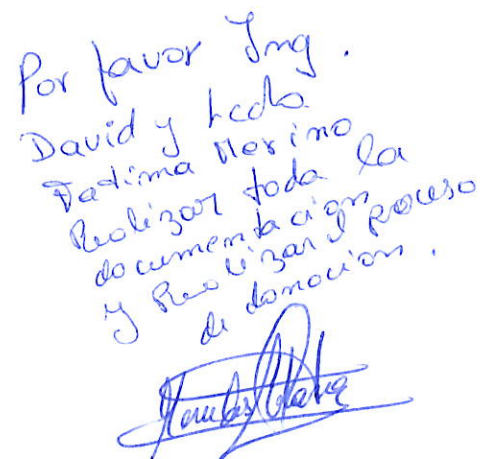 Por favor Ing.
David y Lcda
Fatima Merino
Realizar toda la
documentacion
y Realizar el proceso
de donacion.